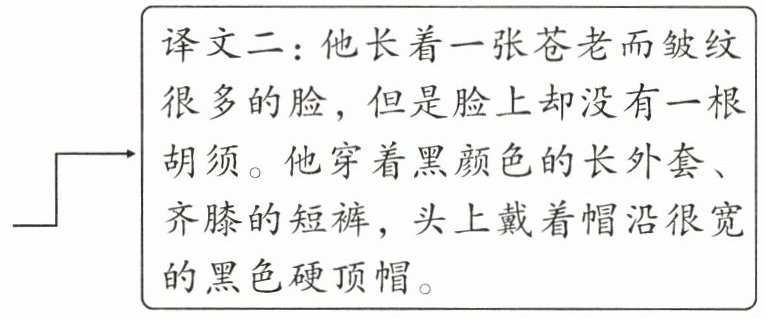 译文二：他长着一张苍老而皱纹
很多的脸，但是脸上却没有一根
胡须。他穿着黑颜色的长外套、
齐膝的短裤，头上戴着帽沿很宽
的黑色硬顶帽。